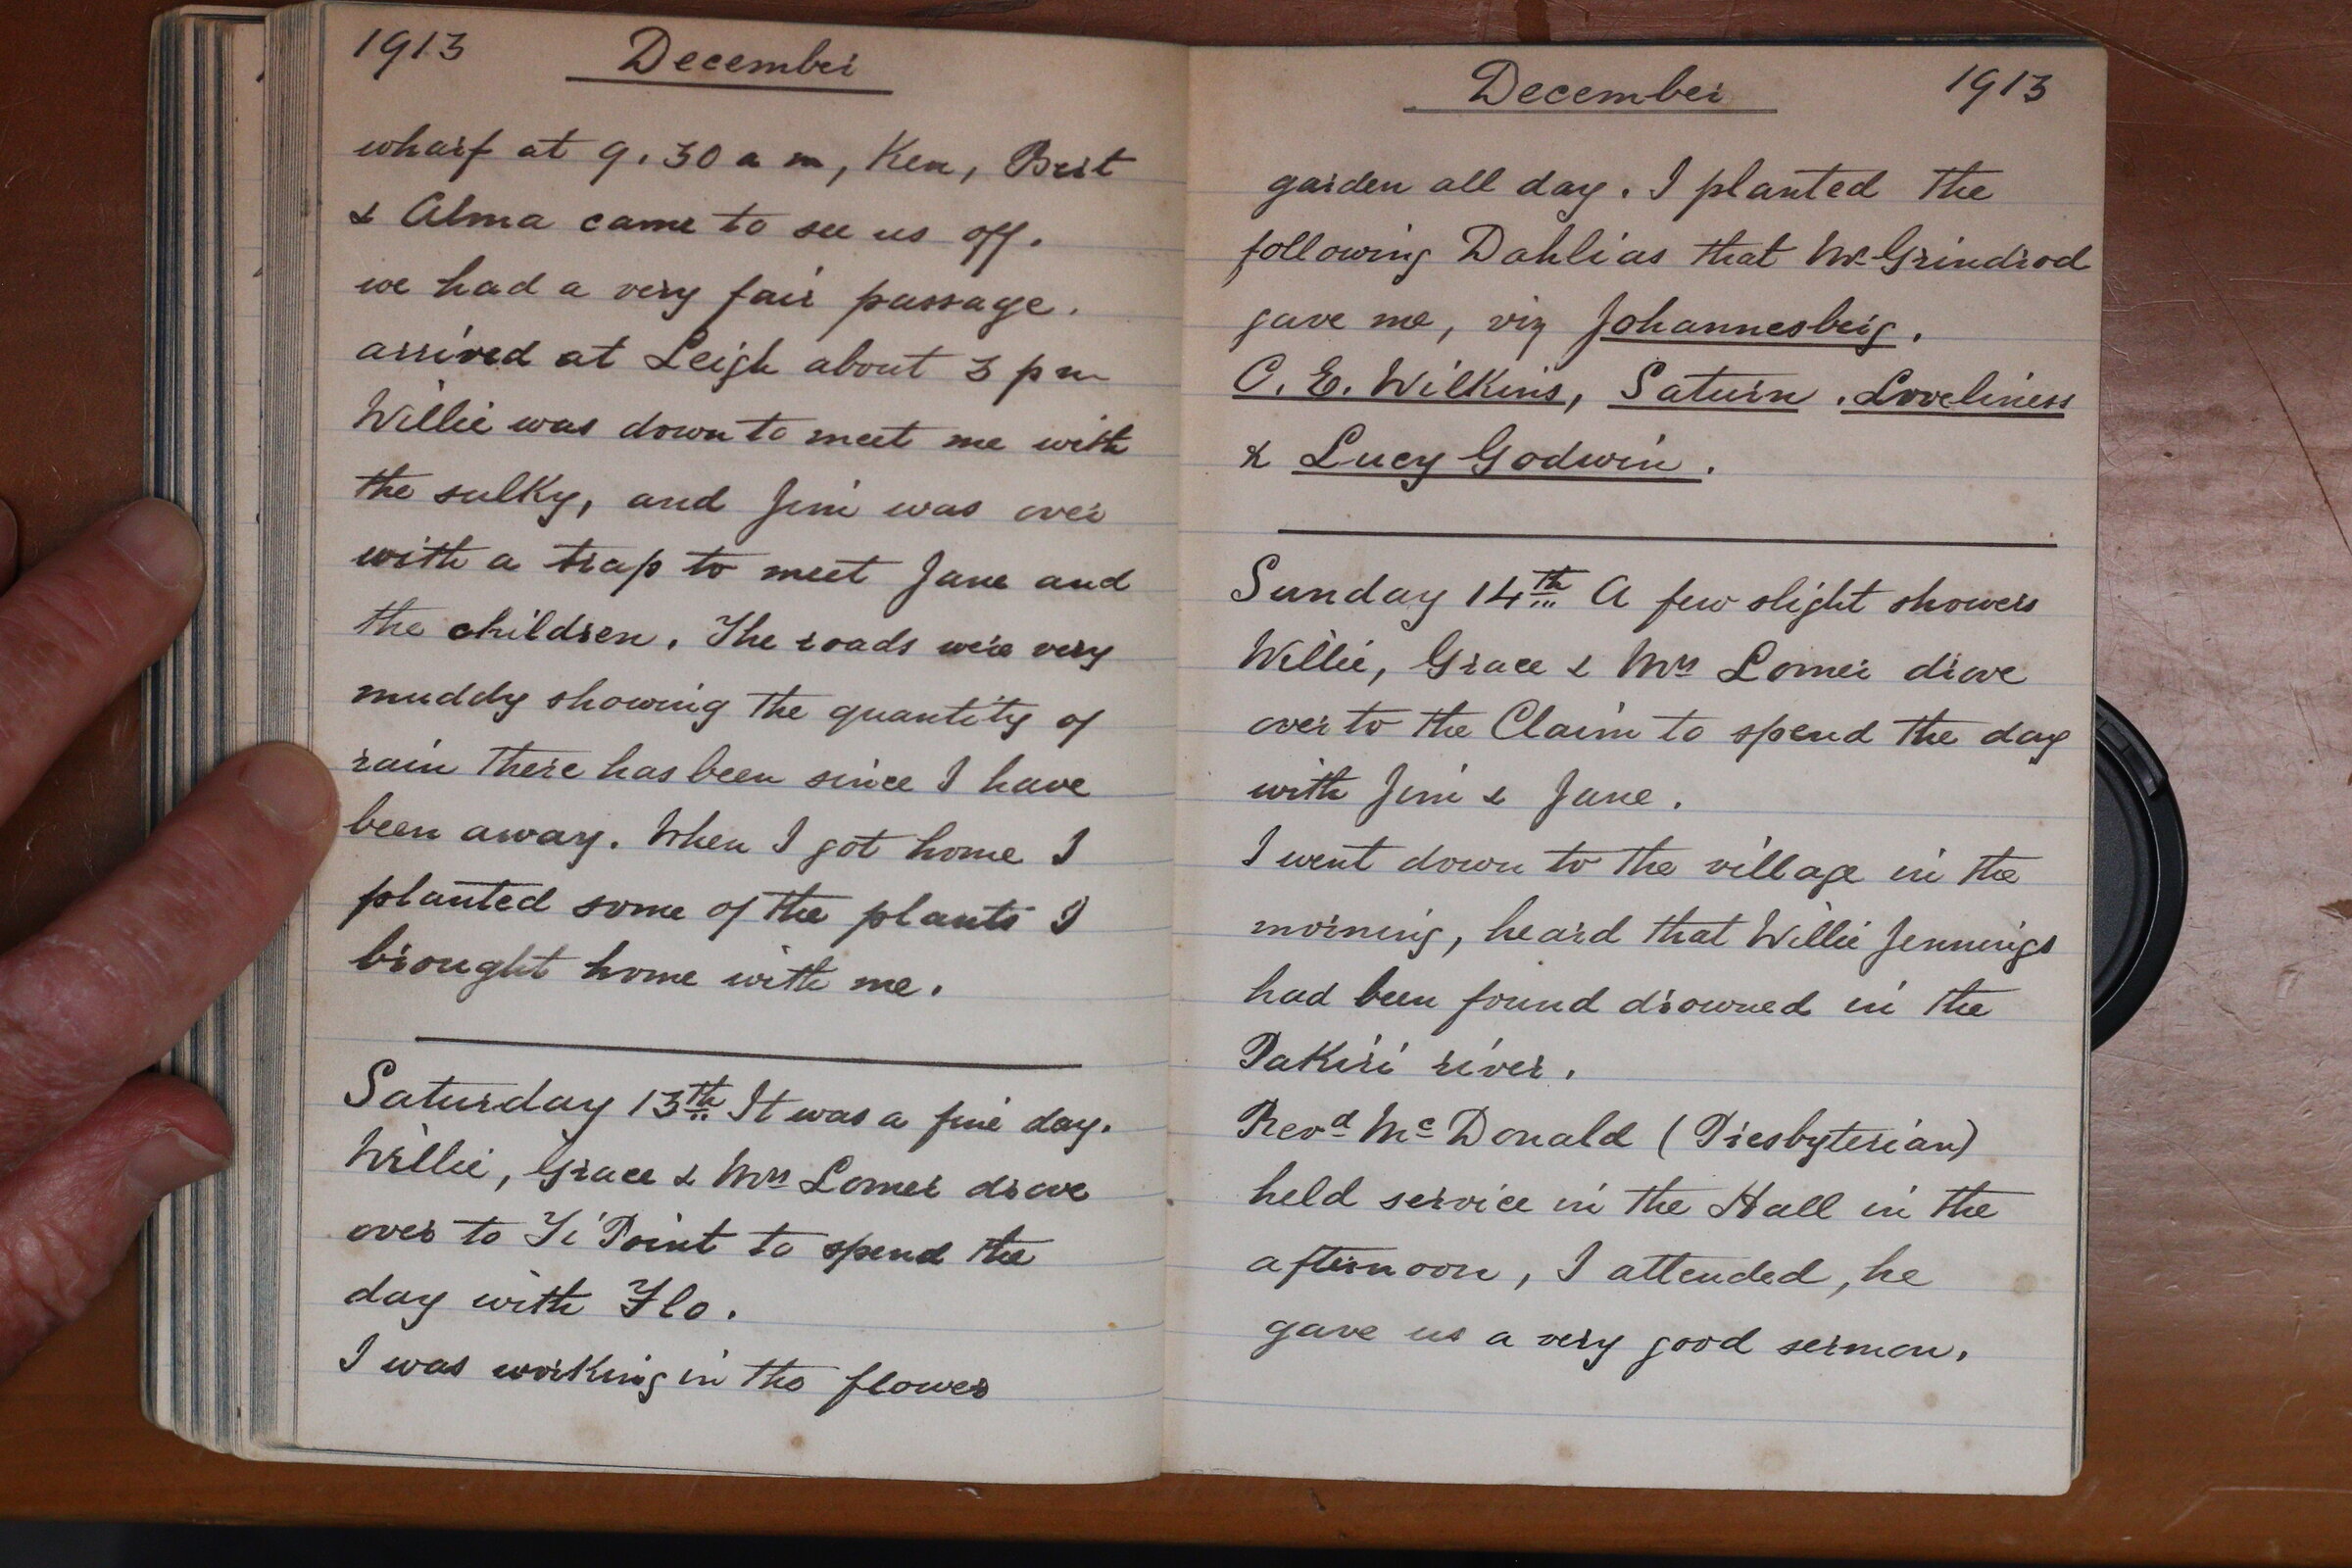 1913 December
wharf at 9.30 a m, Ken, Bert
& Alma came to see us off.
we had a very fair passage.
arrived at Leigh about 3 p m
Willie was down to meet me with
the sulky, and Jim was over
with a trap to meet Jane and
the children. The roads were very
muddy showing the quantity of
rain there has been since I have
been away. When I got home I
planted some of the plants I
brought home with me.
Saturday 13th It was a fine day.
Willie, Grace & Mrs Lomer drove
over to Ti Point to spend the
day with Flo.
I was working in the flower
December 1913
garden all day. I planted the
following Dahlias that Mr Grindrod
gave me, viz Johannesberg.
C. E. Wilkins, Saturn. Loveliness
& Lucy Godwin.
Sunday 14th A few slight showers
Willie, Grace & Mrs Lomer drove
over to the Claim to spend the day
with Jim & Jane.
I went down to the village in the
morning, heard that Willie Jennings
had been found drowned in the
Pakiri river.
Revd McDonald (Presbyterian)
held service in the Hall in the
afternoon, I attended, he
gave us a very good sermon.